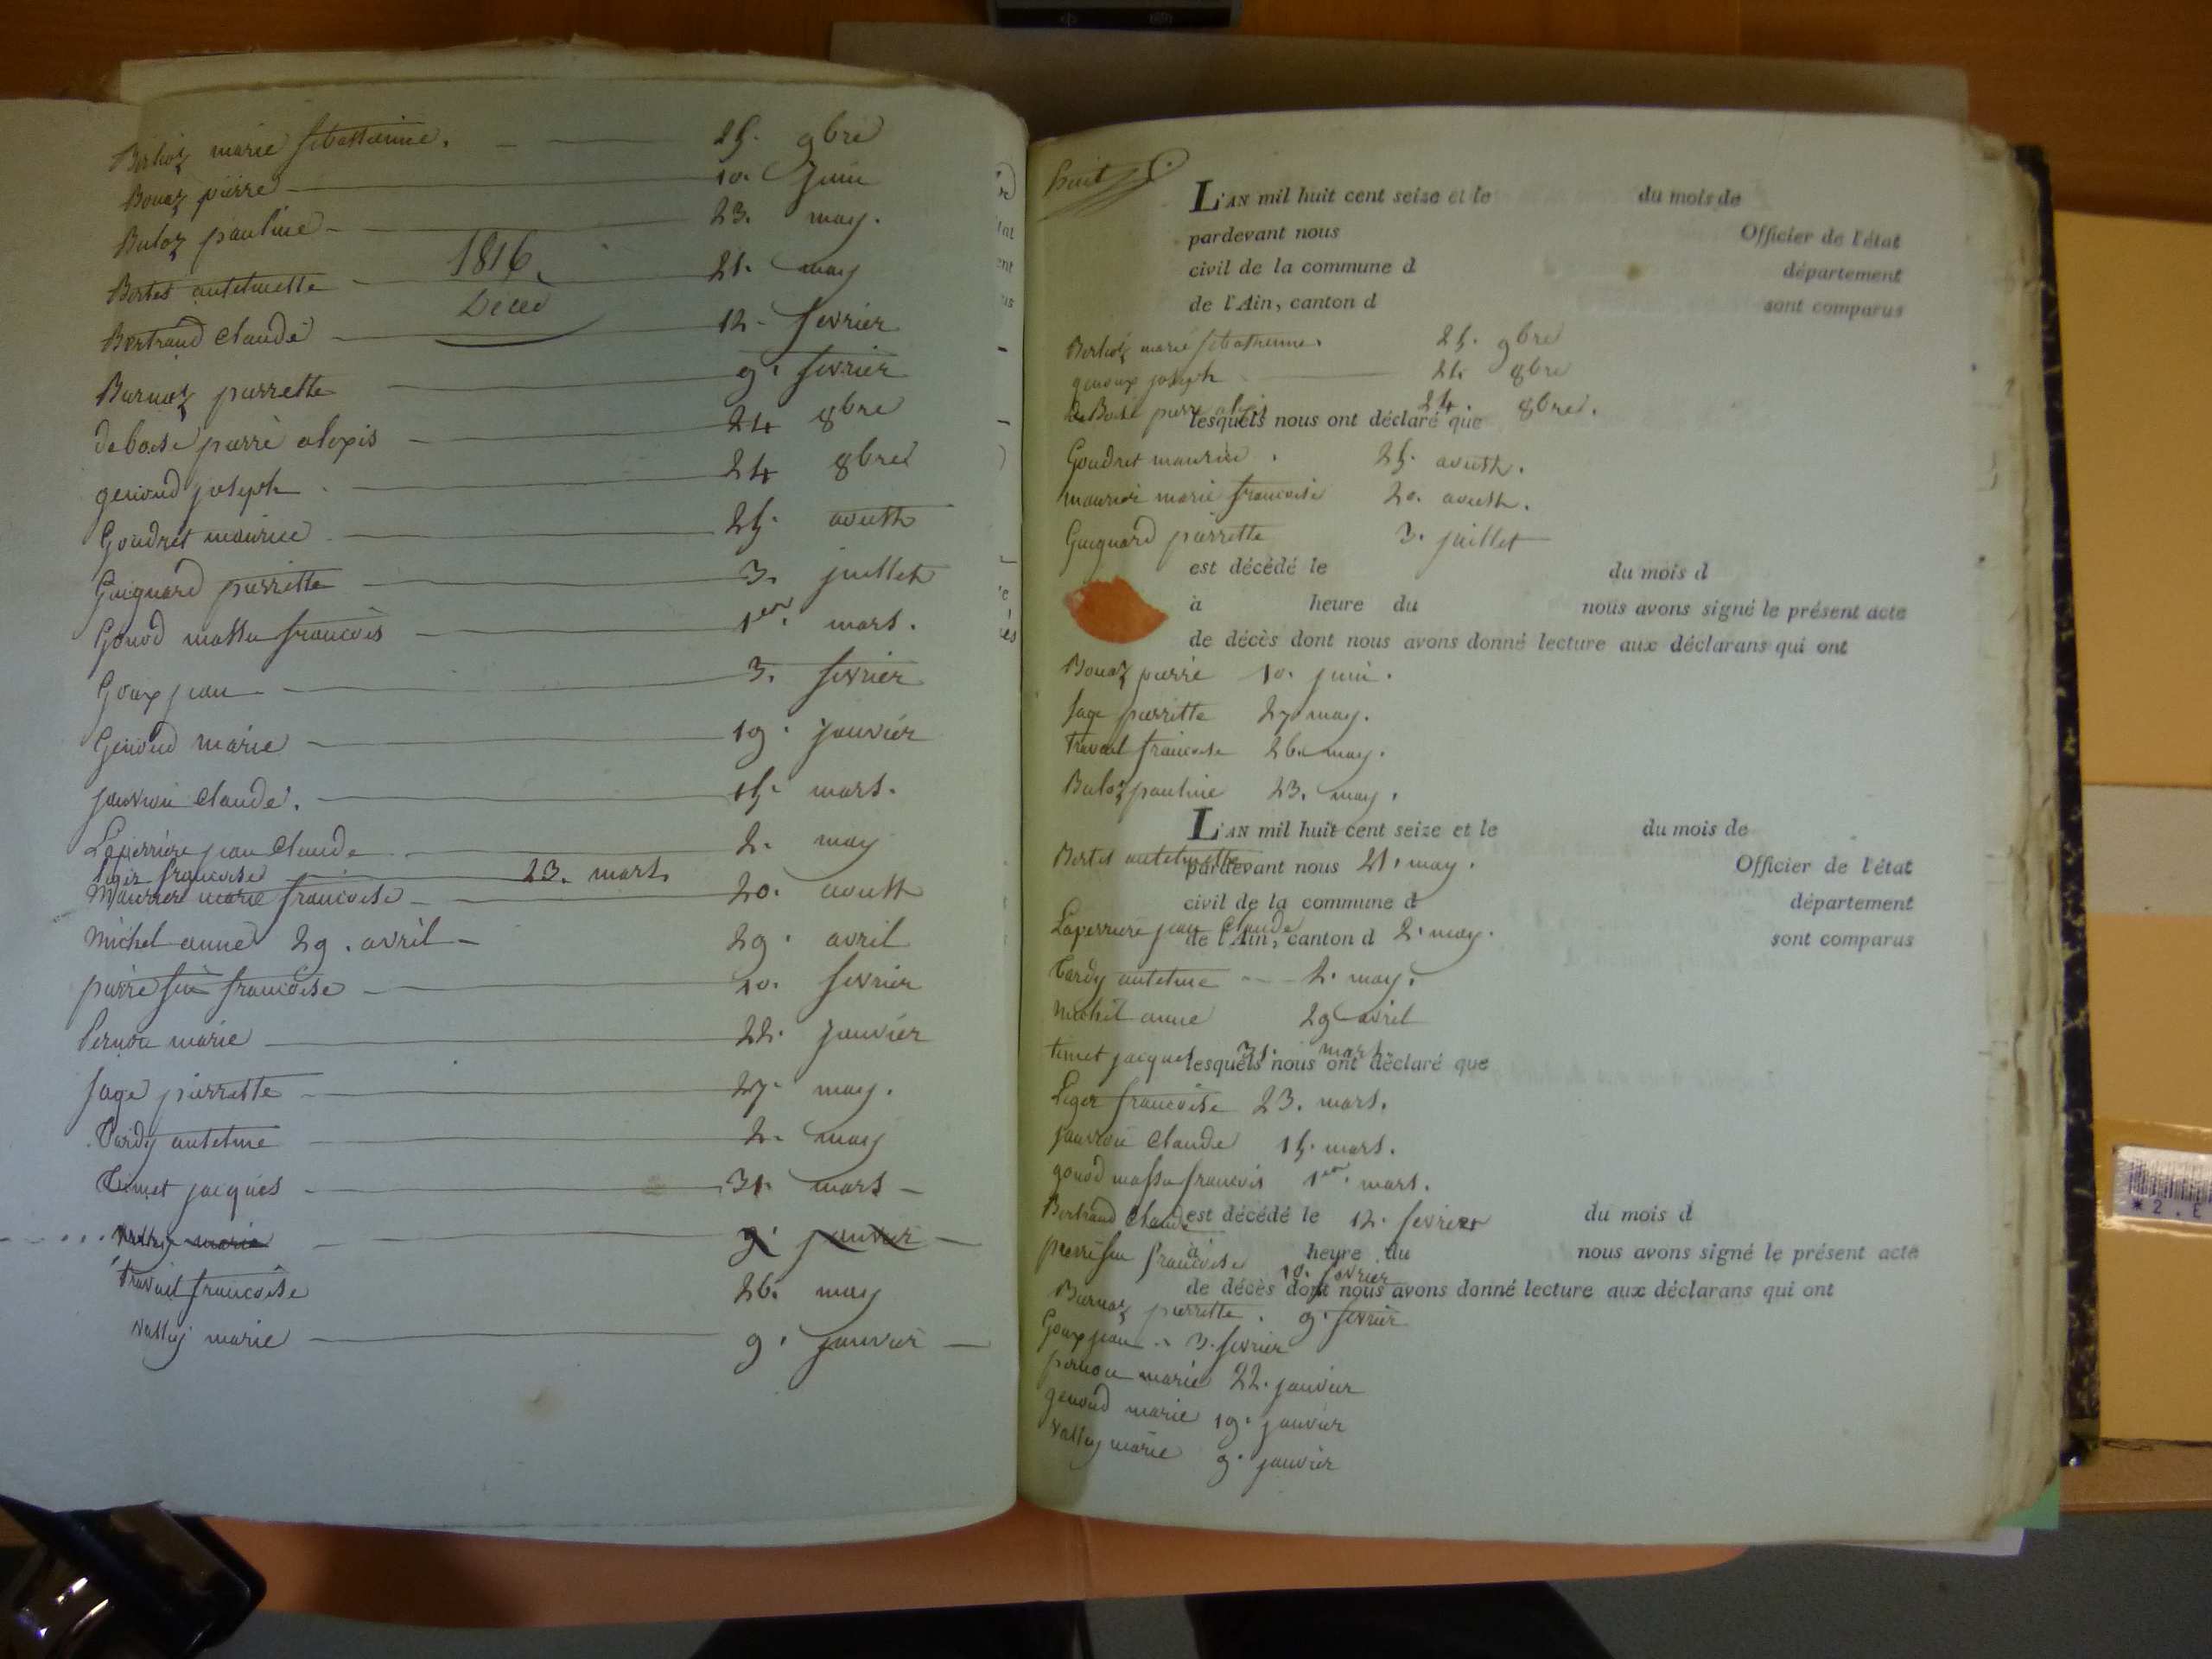 Berlioz marie sebastienne. 25. 9bre
Bouaz pierre 10. Juin
Buloz pauline 23. may.
1816.
Bertet antelmette 21. may
Décès
Bertrand Claude 12. fevrier
Burnoz pierrette 9. fevrier
deboise pierre alexis 24 8bre
genoud joseph 24 8bre
Goudret maurice 25. aoust
Guignard pierrette 3. juillet
Gonod massu francois 1er. mars.
Goux jean 3. fevrier
Genoud marie 19. janvier
janviou Claude. 15. mars.
Laperriere jean Claude 2. may
Leger francoise 23. mars.
Maurier marie francoise 20. aoust
Michel anne 29. avril 29. avril
pierre francoise 10. fevrier
Pernou marie 22. janvier
Sage pierrette 27. may.
Tardy antelme 2. may
Timet jacques 31. mars
Valley marie 9. janvier
Travail francoise 26. may
Valley marie 9. janvier
huit
L'AN mil huit cent seize et le du mois de
pardevant nous Officier de l'état
civil de la commune d département
de l'Ain, canton d sont comparus
Berlioz marie sebastienne. 25. 9bre
genoux joseph 24. 8bre
DeBoise pierre alexis 24. 8bre.
lesquels nous ont déclaré que
Goudret maurice. 25. aoust.
maurier marie francoise 20. aoust.
Guignard pierrette 3. juillet
est décédé le du mois d
à heure du nous avons signé le présent acte
de décès dont nous avons donné lecture aux déclarans qui ont
Bouaz pierre 10. juin.
Sage pierrette 27. may.
Travail francoise 26. may.
Buloz pauline 23. may.
L'AN mil huit cent seize et le du mois de
Bertet antelmette 21. may.
pardevant nous Officier de l'état
civil de la commune d département
Laperriere jean Claude 2. may.
de l'Ain, canton d sont comparus
Tardy antelme 2. may.
michel anne 29 avril
timet jacques 31. mars.
lesquels nous ont déclaré que
Leger francoise 23. mars.
janviou Claude 15. mars.
gonod massu francois 1er. mars.
Bertrand Claude 12. fevrier
est décédé le du mois d
à heure du nous avons signé le présent acte
pierre francoise 10. fevrier
de décès dont nous avons donné lecture aux déclarans qui ont
Burnoz pierrette. 9. fevrier
Goux jean 3. fevrier
pernou marie 22. janvier
genoud marie 19. janvier
Valley marie 9. janvier
*2.E